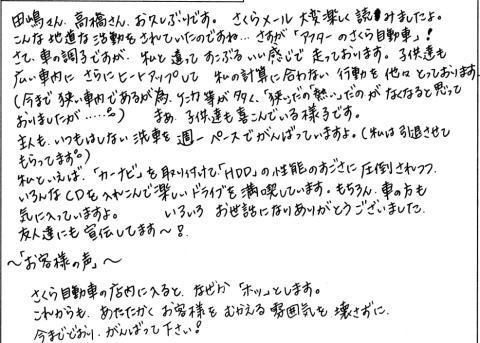 田嶋さん、高橋さん、お久しぶりです。さくらメール大変楽しく読みましたよ。
こんな地道な活動をされていたのですね…さすが「アフターのさくら自動車」!
さて、車の調子ですが、私と違ってすこぶるいい感じで走っております。子供達も
広い車内にさらにヒートアップして私の計算に合わない行動を他々とっております
(今まで狭い車内であるが為、ケンカ等が多く、「狭い」だの「熱い」だのがなくなると思って
おりましたが……。) まぁ、子供達も喜こんでいる様子です。
主人も、いつもはしない洗車を週一ペースでがんばっていますよ。(私は引退させて
もらってます。)
私といえば、「カーナビ」を取り付けて「HDD」の性能のすごさに圧倒されつつ、
いろんなCDを入れこんで楽しいドライブを満喫しています。もちろん、車の方も
気に入っていますよ。 いろいろお世話になりありがとうございました。
友人達にも宣伝してます〜!
〜「お客様の声」〜
さくら自動車の店内に入ると、なぜか「ホッ」とします。
これからも、あたたかくお客様をむかえる雰囲気を壊さずに、
今までどおり、がんばって下さい!